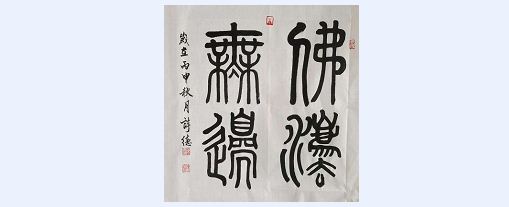 佛灋
無邊
歲在丙申秋月詩德